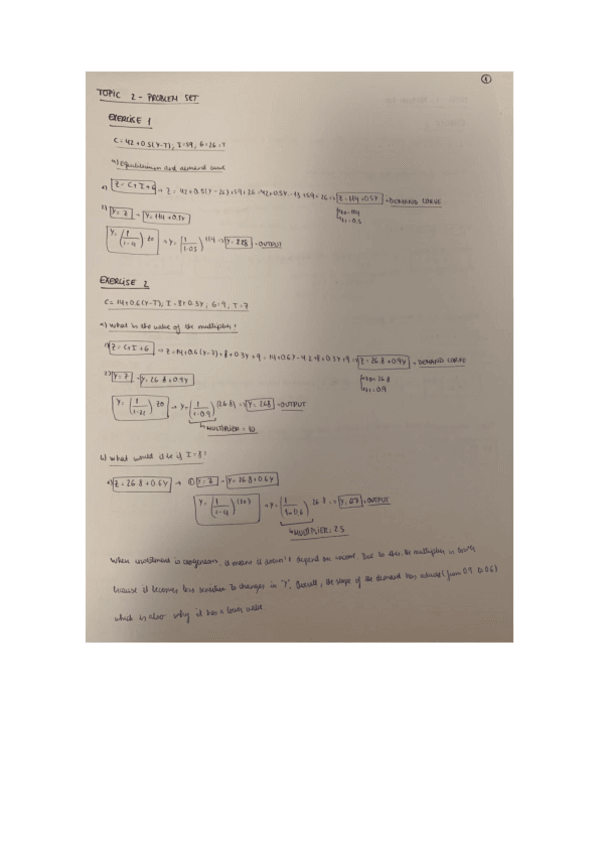 1
TOPIC 2 - PROBLEM SET
EXERCISE 1
C = 42 + 0.5(Y-T); I = 59; G = 26 = T
a) Equilibrium and demand
1) Z = C+I+G → Z = 42 + 0.5(Y-26) + 59 + 26 = 42 + 0.5Y - 13 + 59 + 26 → Z = 114 + 0.5Y = DEMAND CURVE
2) Y = Z → Y = 114 + 0.5Y
Y = (1/1-z1) z0 → Y = (1/1-0.5) 114 → Y = 228 - OUTPUT
EXERCISE 2
C = 14 + 0.6(Y-T); I = 8 + 0.3Y; G = 9, T = 7
a) What is the value of the multiplier?
1) Z = C+I+G → Z = 14 + 0.6(Y-7) + 8 + 0.3Y + 9 = 14 + 0.6Y - 4.2 + 8 + 0.3Y + 9 → Z = 26.8 + 0.9Y = DEMAND CURVE
z0 = 26.8
z1 = 0.9
2) Y = Z → Y = 26.8 + 0.9Y
Y = (1/1-z1) z0 → Y = (1/1-0.9) (26.8) → Y = 268 - OUTPUT
MULTIPLIER = 10
b) What would it be if I = 8?
Z = 26.8 + 0.6Y → Y = Z → Y = 26.8 + 0.6Y
Y = (1/1-z1) (z0) → Y = (1/1-0.6) 26.8 → Y = 67 = OUTPUT
MULTIPLIER: 2.5
When investment is exogenous, it means it doesn't depend on income. Due to this, the multiplier is lower
because it becomes less sensitive to changes in 'Y'. Overall, the slope of the demand has (from 0.9 0.06)
which is also why it has a lower value